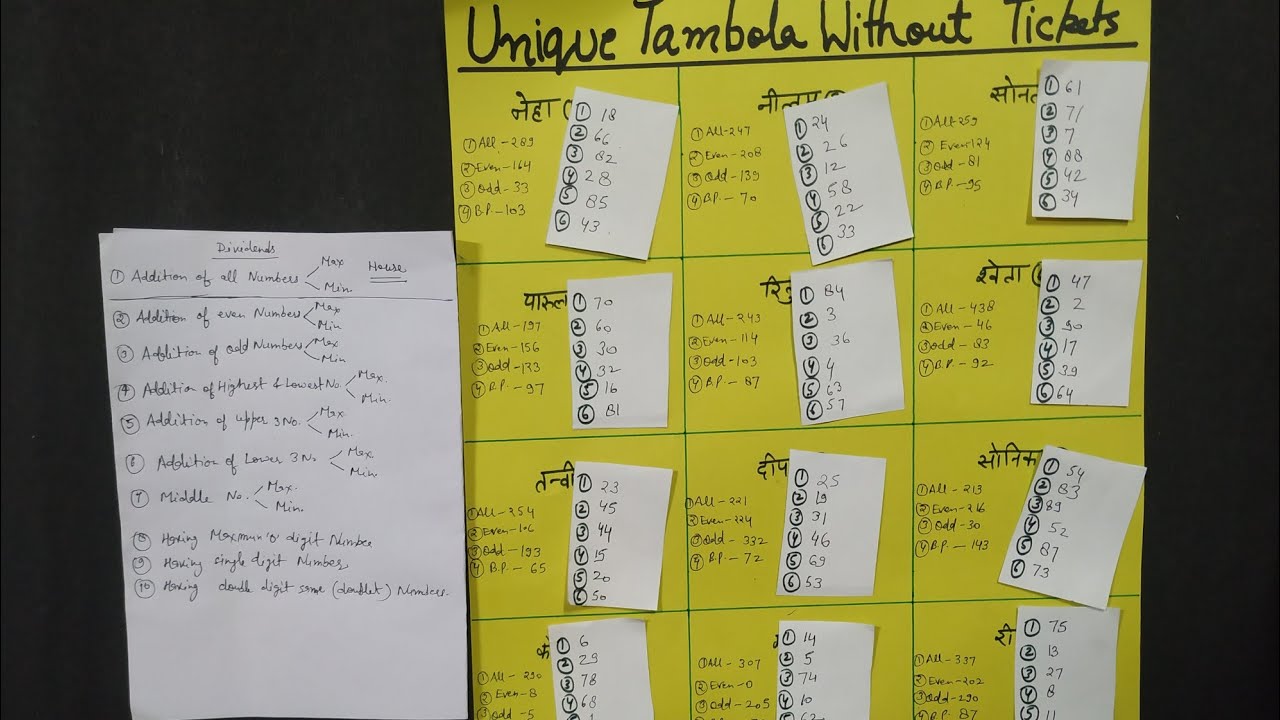 Unique Tambola Without Tickets
Dividends
① Addition of all Numbers Max Min. House
② Addition of even Numbers Max Min
③ Addition of odd Numbers Max Min
④ Addition of Highest & Lowest No. Max. Min.
⑤ Addition of upper 3 No. Max. Min.
⑥ Addition of Lower 3 No Max. Min.
⑦ Middle No. Max. Min.
⑧ Having Maxmun 0 digit Number
⑨ Having single digit Numbers
⑩ Having double digit same (doublet) Numbers.
नेहा (
① All - 289
② Even - 164
③ Odd - 33
④ B.P. - 103
① 18
② 66
③ 82
④ 28
⑤ 85
⑥ 43
नीलम
① All - 247
② Even - 208
③ Odd - 139
④ B.P. - 70
① 24
② 26
③ 12
④ 58
⑤ 22
⑥ 33
सोनल
① All - 259
② Even - 124
③ Odd - 81
④ B.P. - 95
① 61
② 71
③ 7
④ 88
⑤ 42
⑥ 34
पारुल
① All - 197
② Even - 156
③ Odd - 133
④ B.P. - 97
① 70
② 60
③ 30
④ 32
⑤ 16
⑥ 81
① All - 243
② Even - 114
③ Odd - 103
④ B.P. - 87
① 84
② 3
③ 36
④ 4
⑤ 63
⑥ 57
श्वेता (
① All - 438
② Even - 46
③ Odd - 83
④ B.P. - 92
① 47
② 2
③ 90
④ 17
⑤ 39
⑥ 64
तन्वी
① All - 254
② Even - 106
③ Odd - 193
④ B.P. - 65
① 23
② 45
③ 44
④ 15
⑤ 20
⑥ 50
दीप
① All - 221
② Even - 224
③ Odd - 332
④ B.P. - 72
① 25
② 19
③ 31
④ 46
⑤ 69
⑥ 53
सोनिक
① All - 213
② Even - 216
③ Odd - 30
④ B.P. - 143
① 54
② 83
③ 89
④ 52
⑤ 87
⑥ 73
① All - 290
② Even - 8
③ Odd - 5
① 6
② 29
③ 78
④ 68
① All - 307
② Even - 0
③ Odd - 205
① 14
② 5
③ 74
④ 10
⑤ 62
री
① All - 337
② Even - 202
③ Odd - 290
④ B.P. 87
① 75
② 13
③ 27
④ 8
⑤ 11